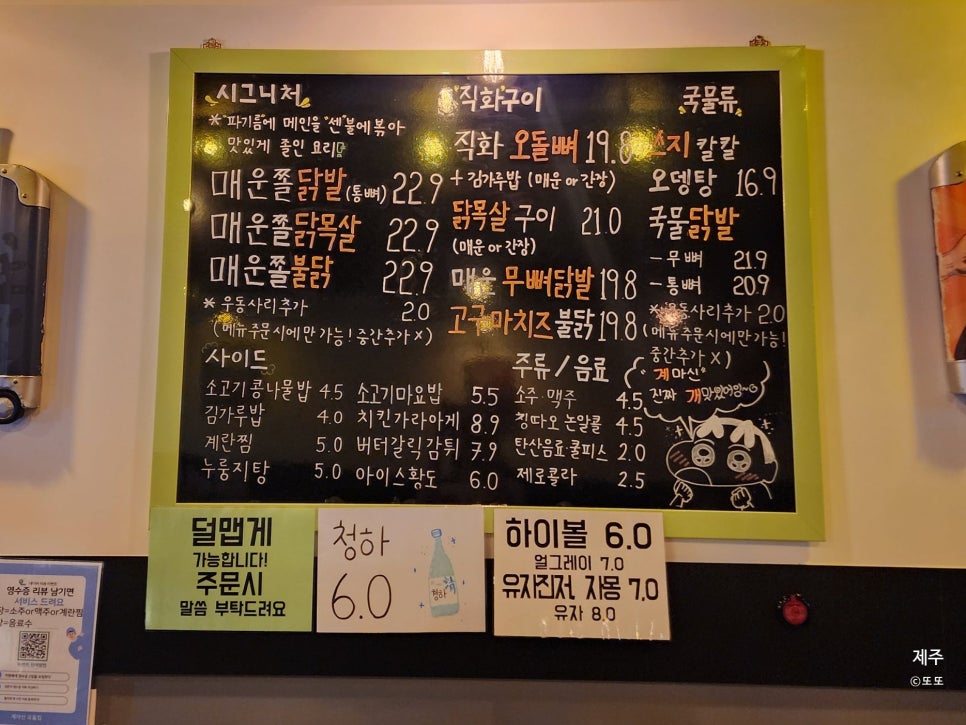 시그니처
* "파기름"에 메인을 "센"불에볶아
맛있게 졸인 요리
매운쫄닭발(통뼈) 22.9
매운쫄닭목살 22.9
매운쫄불닭 22.9
* 우동사리추가 2.0
(메뉴주문시에만가능! 중간추가X)
사이드
소고기콩나물밥 4.5
김가루밥 4.0
계란찜 5.0
누룽지탕 5.0
소고기마요밥 5.5
치킨가라아게 8.9
버터갈릭감튀 7.9
아이스황도 6.0
직화구이
직화 오돌뼈 19.8
+ 김가루밥 (매운 or 간장)
닭목살 구이 21.0
(매운 or 간장)
매운 무뼈닭발 19.8
고구마치즈불닭 19.8
주류 / 음료
소주·맥주 4.5
칭따오논알콜 4.5
탄산음료·쿨피스 2.0
제로콜라 2.5
국물류
쓰지 칼칼
오뎅탕 16.9
국물닭발
- 무뼈 21.9
- 통뼈 20.9
* 우동사리추가 2.0
(메뉴주문시에만가능!
중간추가X)
"계마신"
진짜 개맛있어잉~
덜맵게
가능합니다!
주문시
말씀 부탁드려요
청하
6.0
청하
하이볼 6.0
얼그레이 7.0
유자진저, 자몽 7.0
유자 8.0
영수증 리뷰 남기면
서비스 드려요
=소주or맥주or계란찜
=음료수
제주
©또또